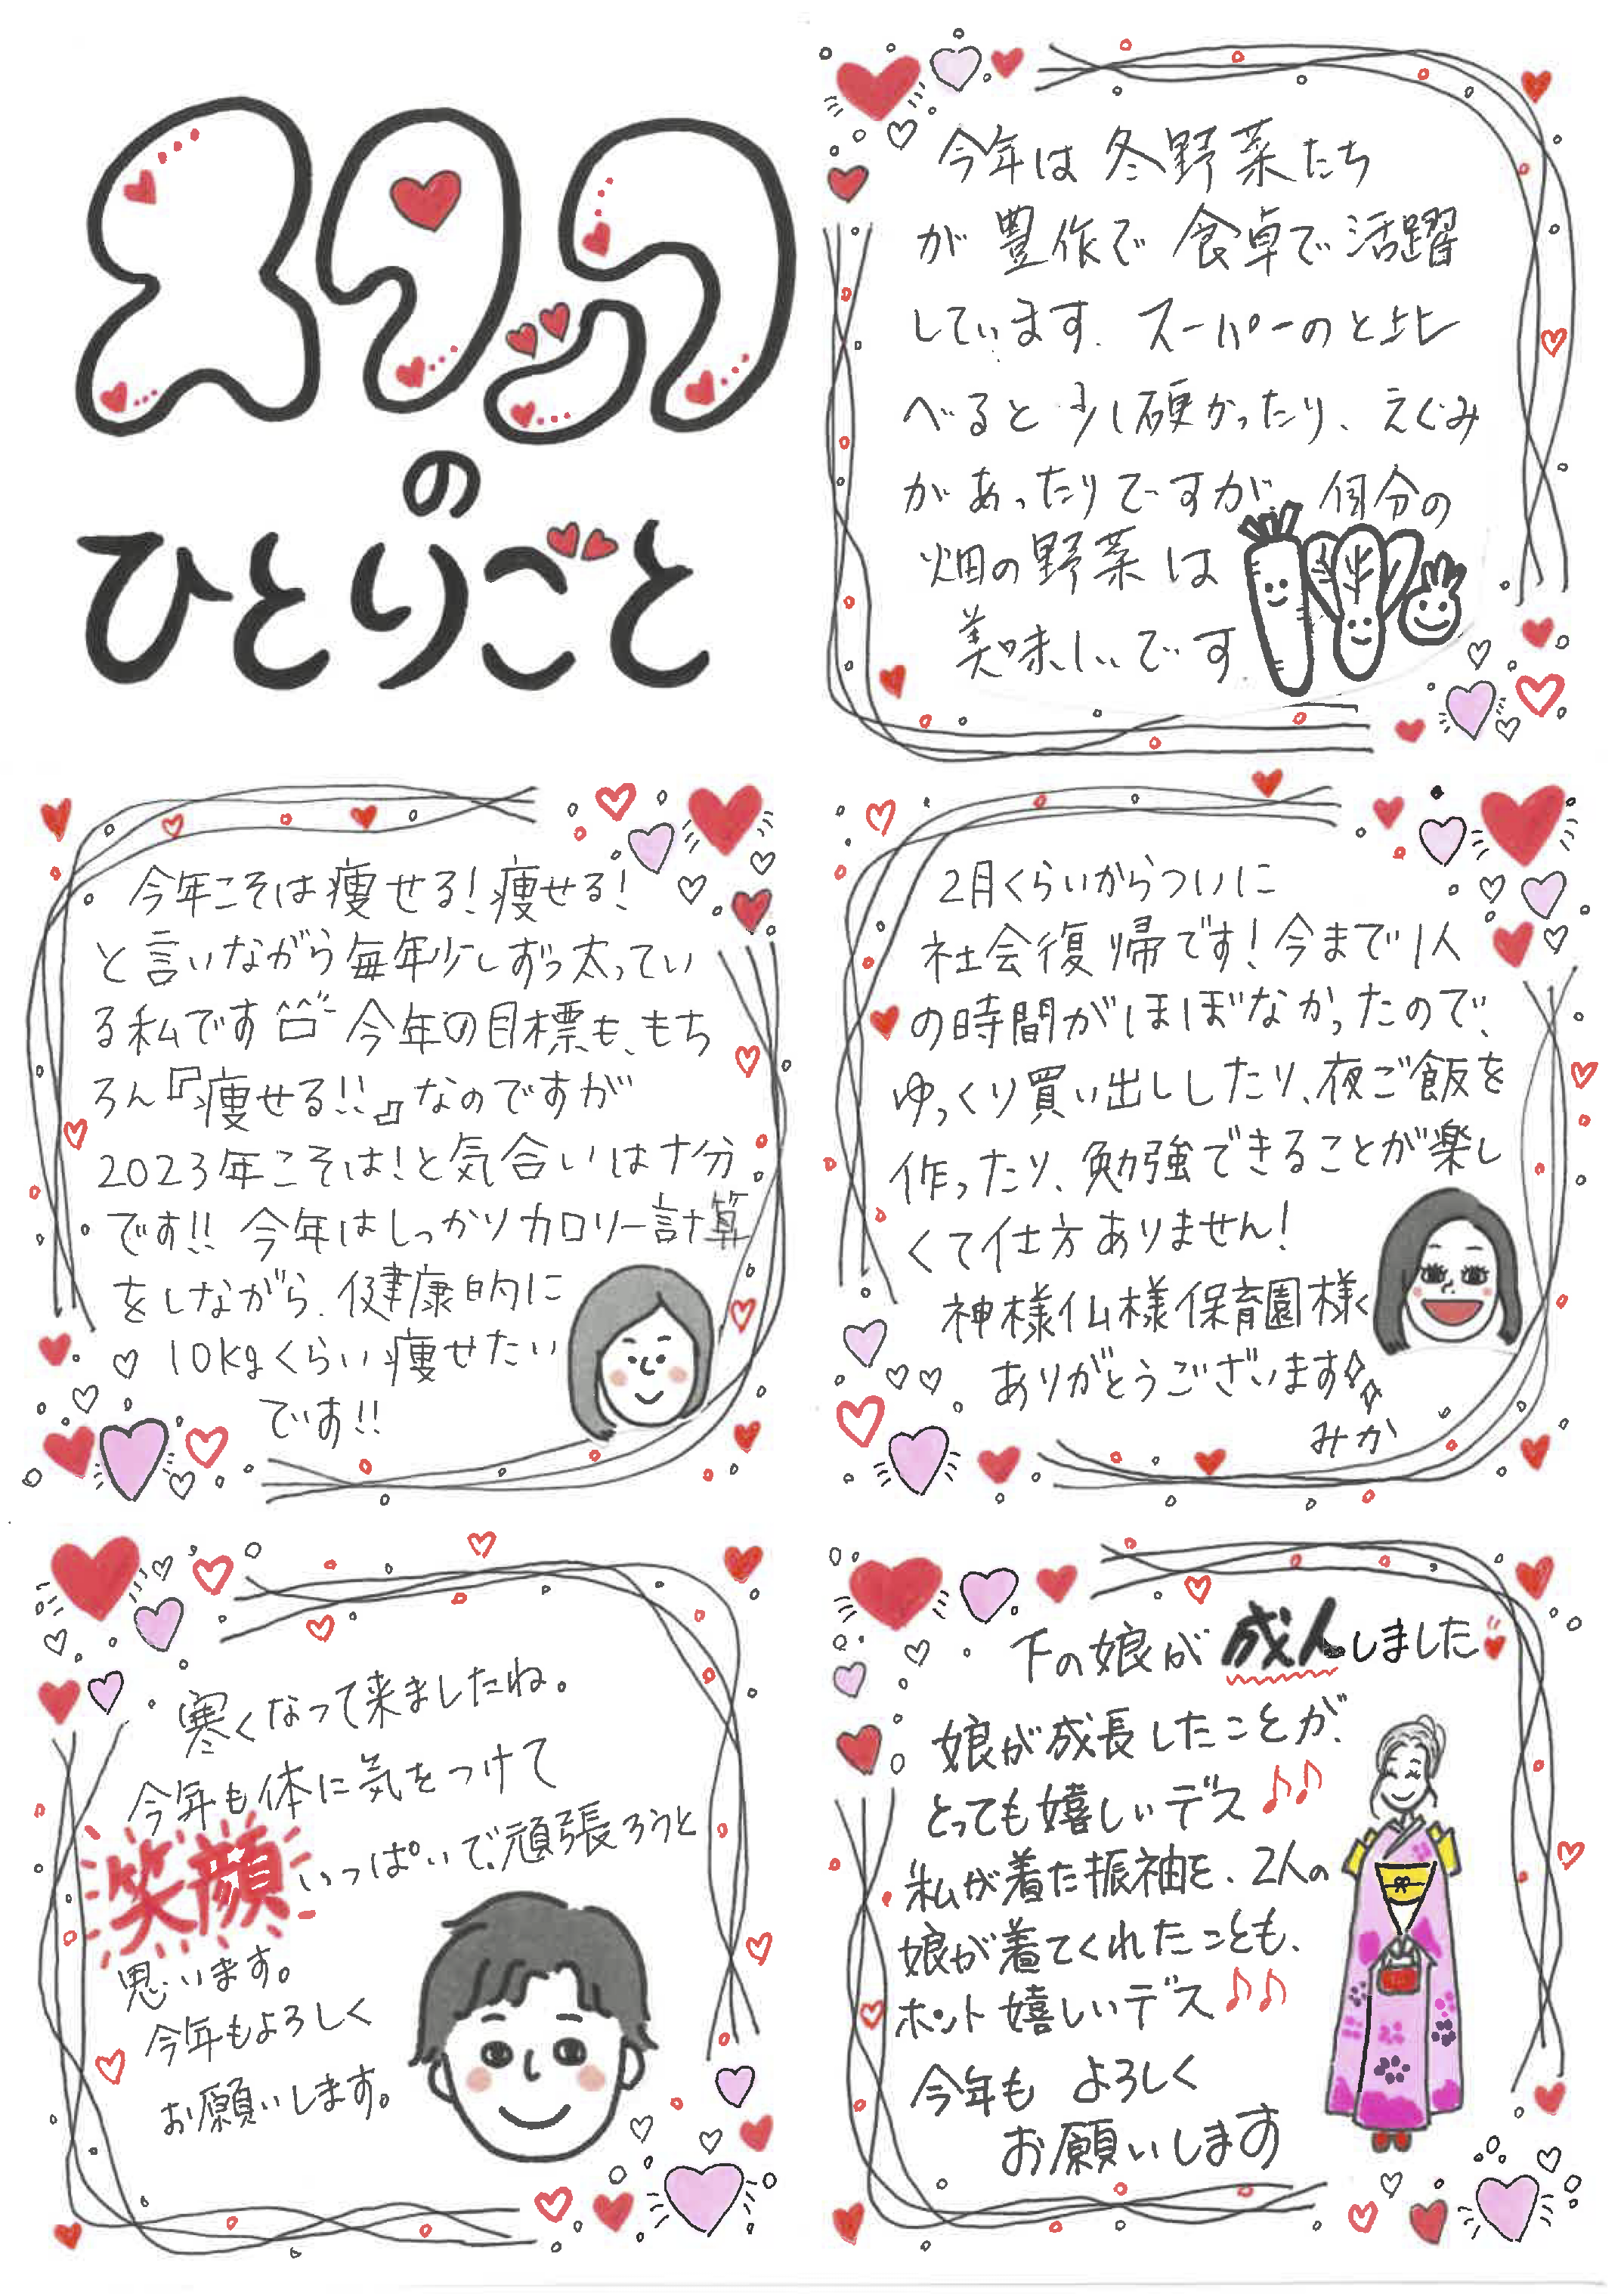 スタッフ
の
ひとりごと
今年は冬野菜たち
が豊作で食卓で活躍
しています。スーパーのと比
べると少し硬かったり、えぐみ
があったりですが、自分の
畑の野菜は
美味しいです
今年こそは痩せる!痩せる!
と言いながら毎年少しずつ太ってい
る私です 今年の目標も、もち
ろん『痩せる!!』なのですが
2023年こそは!と気合いは十分
です!! 今年はしっかりカロリー計算
をしながら、健康的に
10kgくらい痩せたい
です!!
2月くらいからついに
社会復帰です!今まで1人
の時間がほぼなかったので、
ゆっくり買い出ししたり、夜ご飯を
作ったり、勉強できることが楽し
くて仕方ありません!
神様仏様保育園様
ありがとうございます
みか
寒くなって来ましたね。
今年も体に気をつけて
笑顔いっぱいで、頑張ろうと
思います。
今年もよろしく
お願いします。
下の娘が成人しました
娘が成長したことが、
とっても嬉しいデス♪♪
私が着た振袖を、2人の
娘が着てくれたことも、
ホント嬉しいデス♪♪
今年も よろしく
お願いします